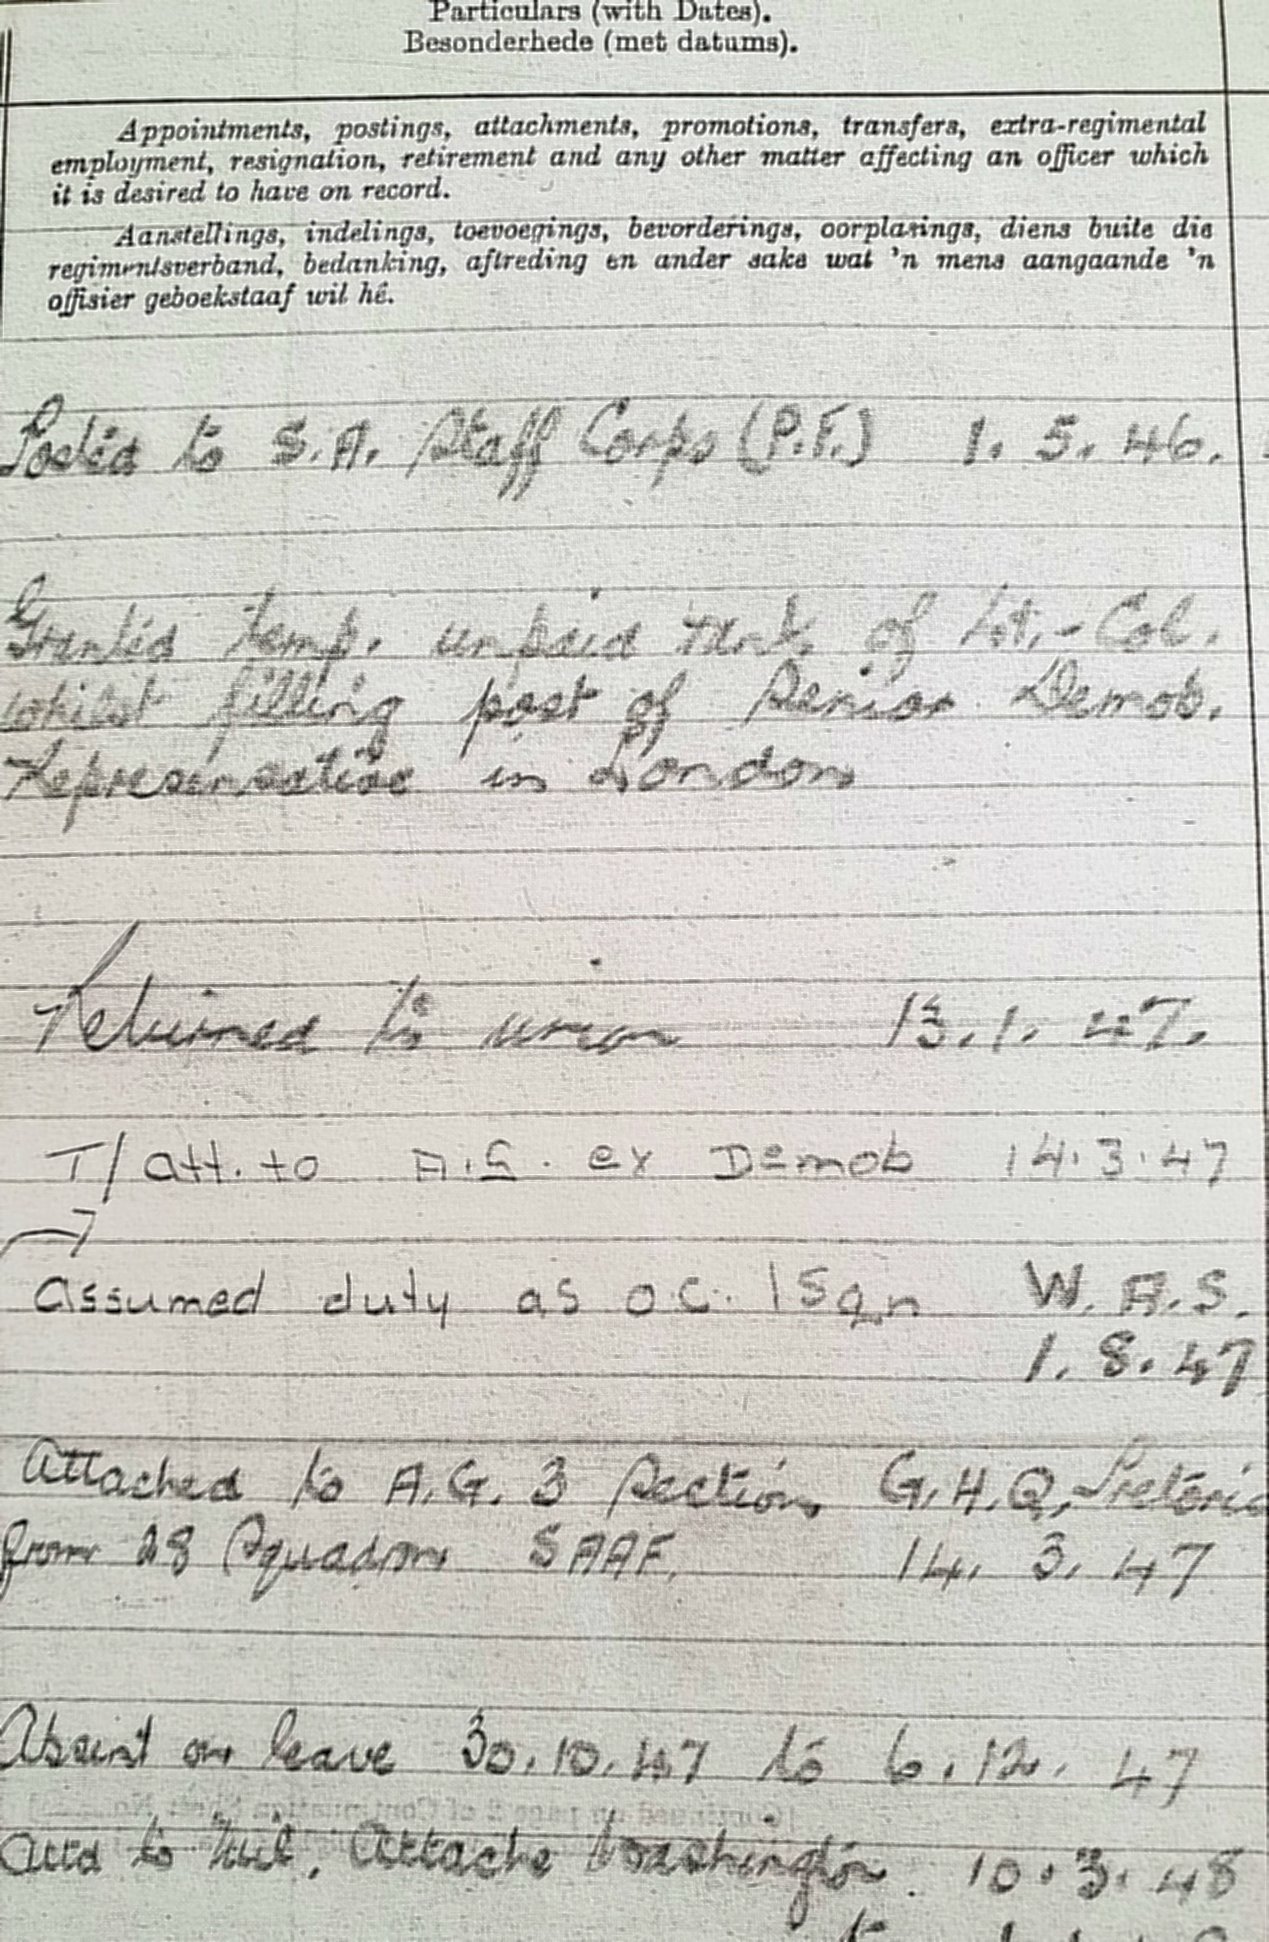 Particulars (with Dates).
Besonderhede (met datums).
Appointments, postings, attachments, promotions, transfers, extra-regimental
employment, resignation, retirement and any other matter affecting an officer which
it is desired to have on record.
Aanstellings, indelings, toevoegings, bevorderings, oorplasings, diens buite die
regimentsverband, bedanking, aftreding en ander sake wat 'n mens aangaande 'n
offisier geboekstaaf wil hê.
Posted to S.A. Staff Corps (P.F.) 1. 5. 46.
Granted temp. unpaid rank of Lt.-Col.
whilst filling post of Senior Demob.
Representative in London
Returned to union 13.1.47.
T/att. to A.G. ex Demob 14.3.47
Assumed duty as o.c. 1 Sqn W.A.S.
1.8.47
Attached to A.G. 3 Section, G.H.Q, Pretoria
from 28 Squadron SAAF. 14. 3. 47
Absent on leave 30.10.47 to 6.12.47
Attd to Mil. Attache Washington. 10.3.48
to